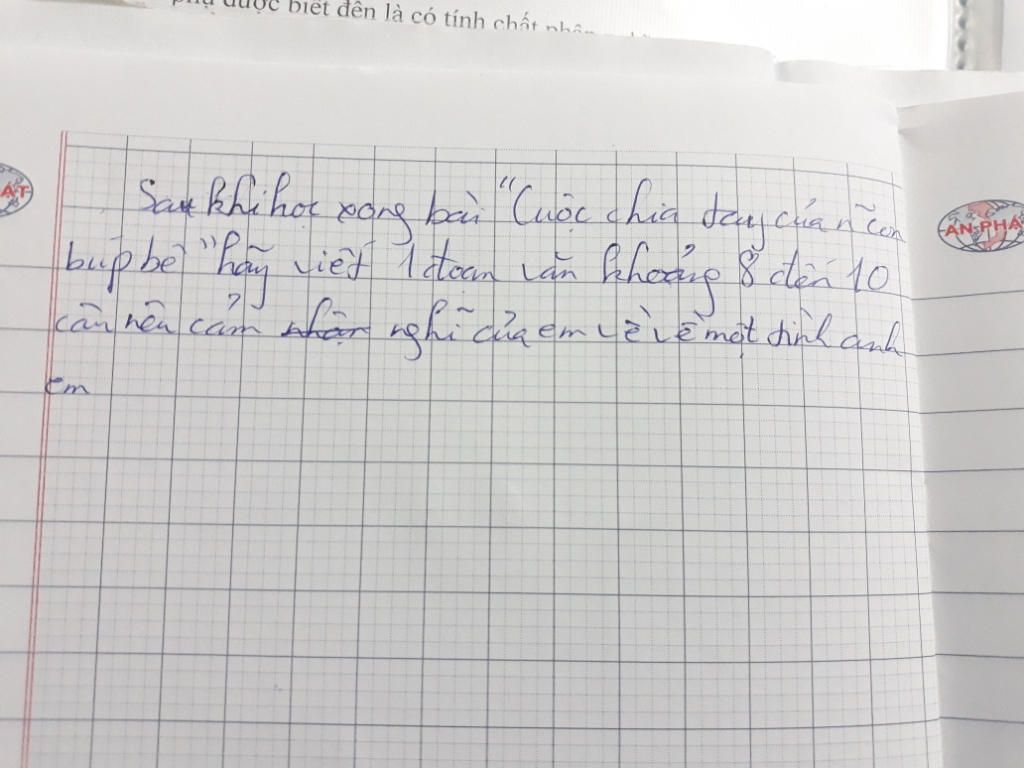 phụ được biết đến là có tính chất
Sau khi học xong bài "Cuộc chia tay của n~ con
búp bê" hãy viết 1 đoan văn khoảng 8 đến 10
câu nêu cảm nhận nghĩ của em về về một tình anh
em
ÁT
AN PHÁ